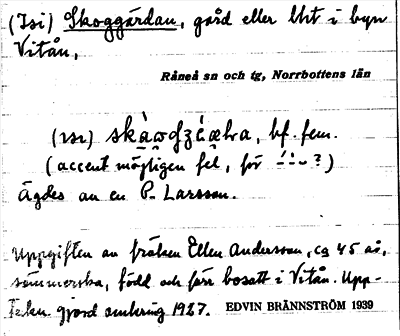 (Isi) Skoggårdan, gård eller dlt i byn
Vitån,
Råneå sn och tg, Norrbottens län
(ısı) bf. fem.
(accent möjligen fel, för ?)
Ägdes av en P. Larsson.
Uppgiften av fröken Ellen Andersson, ca 45 år,
sömmerska, född och förr bosatt i Vitån. Upp-
teckn. gjord omkring 1927. EDVIN BRÄNNSTRÖM 1939